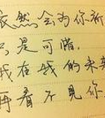 依然会为你祈
只是可惜，
我在我的未来
再看不见你